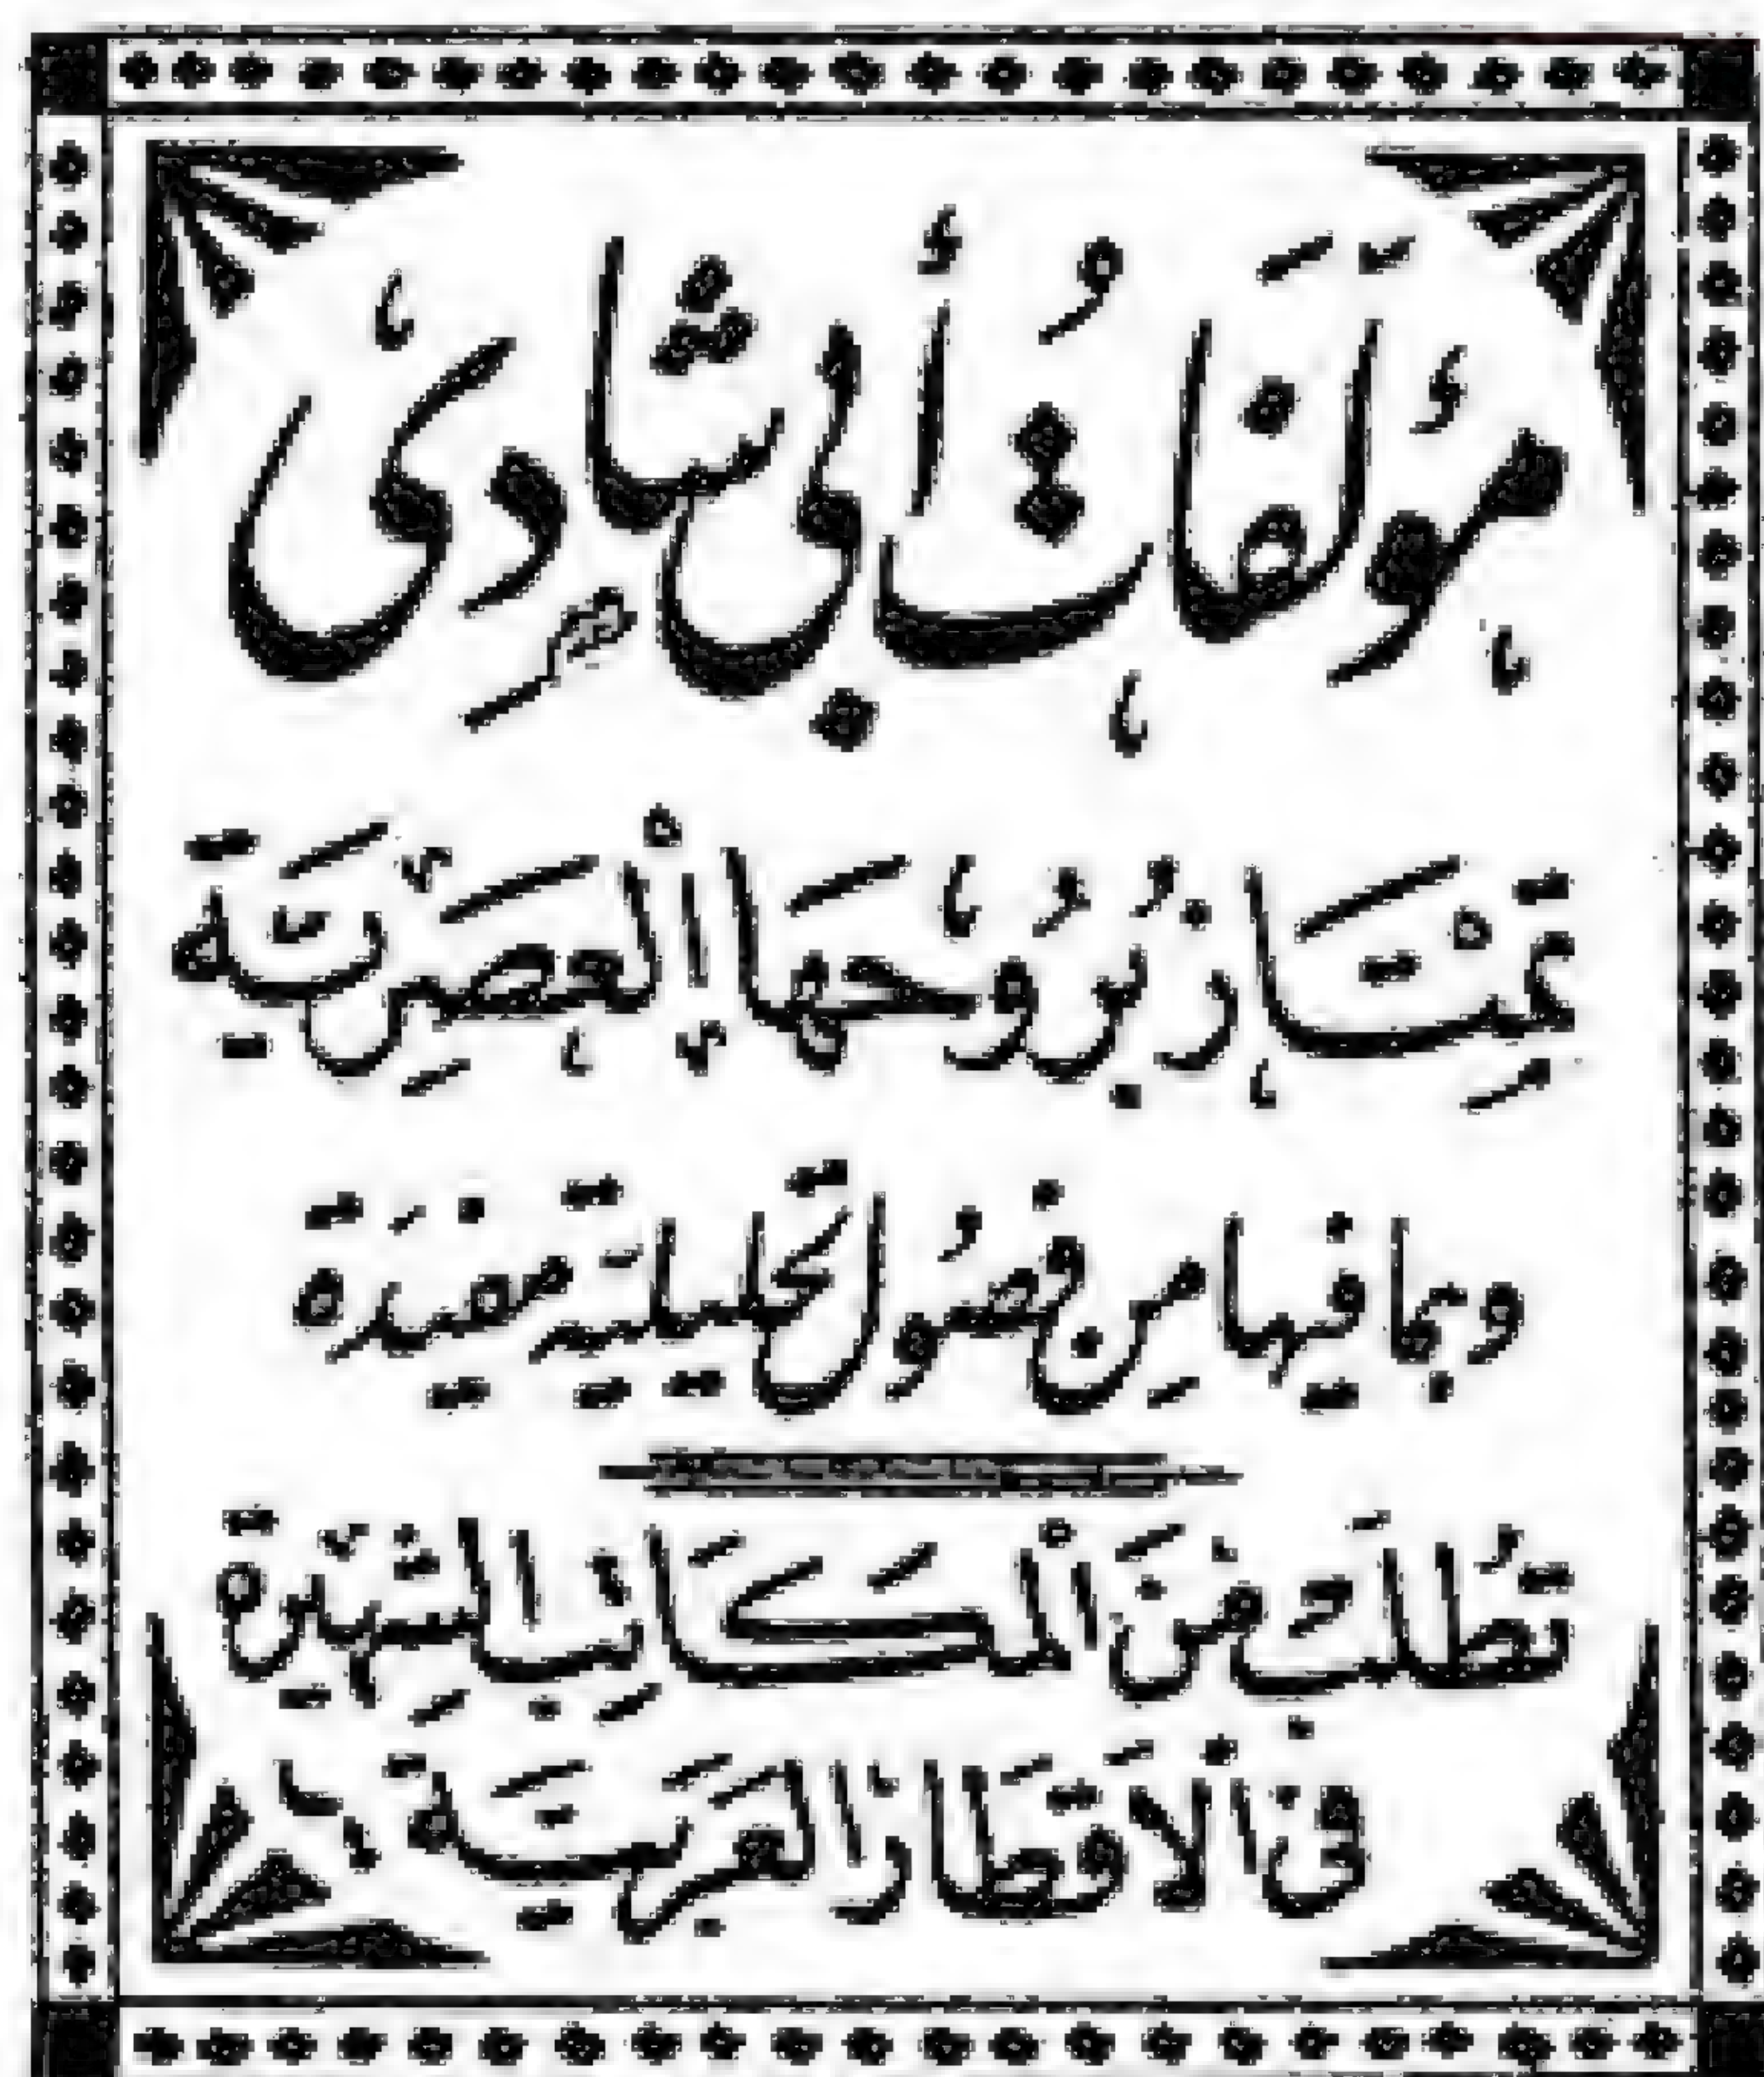 مُؤَلَّفَاتُ أَبِى شَادِى
تَمْتَازُ بِرُوحِهَا الْعَصْرِيَّة
وبما فيها مِن فصُول تحليليَّة مفيدَة
تُطْلَبُ مِنَ الْمَكَاتِبِ الشَّهِيرَة
فى الأَقطَارِ العَرَبيَّة